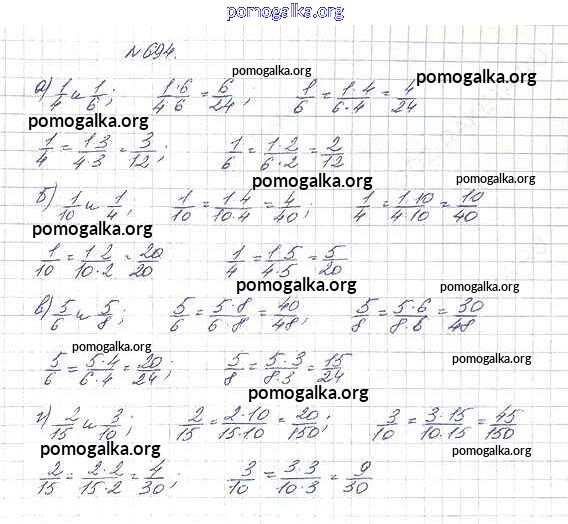 pomogalka.org
N 694.
pomogalka.org pomogalka.org pomogalka.org
а) 1/4 и 1/6; 1·6/4·6 = 6/24; 1/6 = 1·4/6·4 = 4/24
pomogalka.org
1/4 = 1·3/4·3 = 3/12; 1/6 = 1·2/6·2 = 2/12
pomogalka.org pomogalka.org
б) 1/10 и 1/4; 1/10 = 1·4/10·4 = 4/40; 1/4 = 1·10/4·10 = 10/40
pomogalka.org
1/10 = 1·2/10·2 = 20/20 1/4 = 1·5/4·5 = 5/20
pomogalka.org pomogalka.org pomogalka.org
в) 5/6 и 5/8; 5/6 = 5·8/6·8 = 40/48; 5/8 = 5·6/8·6 = 30/48
pomogalka.org pomogalka.org
5/6 = 5·4/6·4 = 20/24; 5/8 = 5·3/8·3 = 15/24
pomogalka.org pomogalka.org
г) 2/15 и 3/10; 2/15 = 2·10/15·10 = 20/150; 3/10 = 3·15/10·15 = 45/150
pomogalka.org pomogalka.org
2/15 = 2·2/15·2 = 4/30; 3/10 = 3·3/10·3 = 9/30